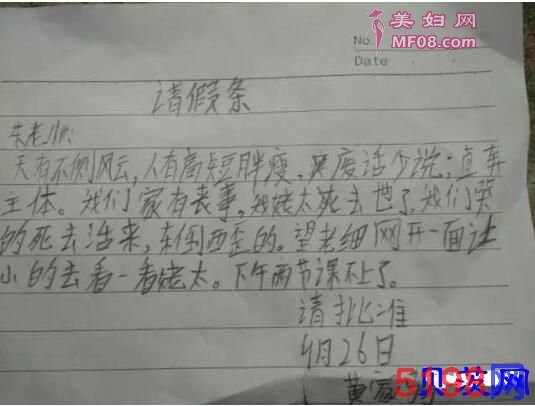 美妇网
MF08.com
No.
Date
请假条
朱老师:
天有不侧风云,人有高短胖瘦,废话少说;直奔
主体。我们家有丧事,我姥太死去世了,我们哭
的死去活来,东倒西歪的。望老细网开一面让
小的去看一看姥太。下午两节课不上了。
请批准
4月26日
黄
贝艺网